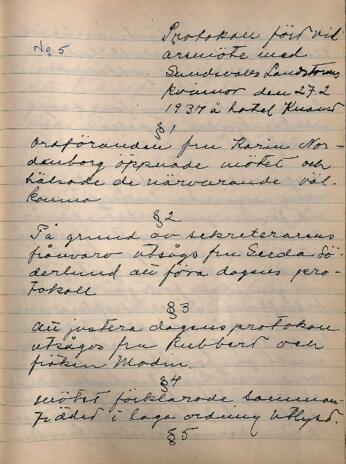 No 5
Protokoll fört vid
årsmöte med
Sundsvalls Landstorms
kvinnor den 27.2
1937 å hotel Knaust
§ 1
Ordföranden fru Karin Nor-
denborg öppnade mötet och
hälsade de närvarande väl-
komna
§ 2
På grund av sekreterarens
frånvaro utsågs fru Gerda Sö-
derlund att föra dagens pro-
tokoll
§ 3
Att justera dagens protokoll
utsågos fru Rubbert och
fröken Modin.
§ 4
Mötet förklarade samman-
trädet i laga ordning utlyst.
§ 5